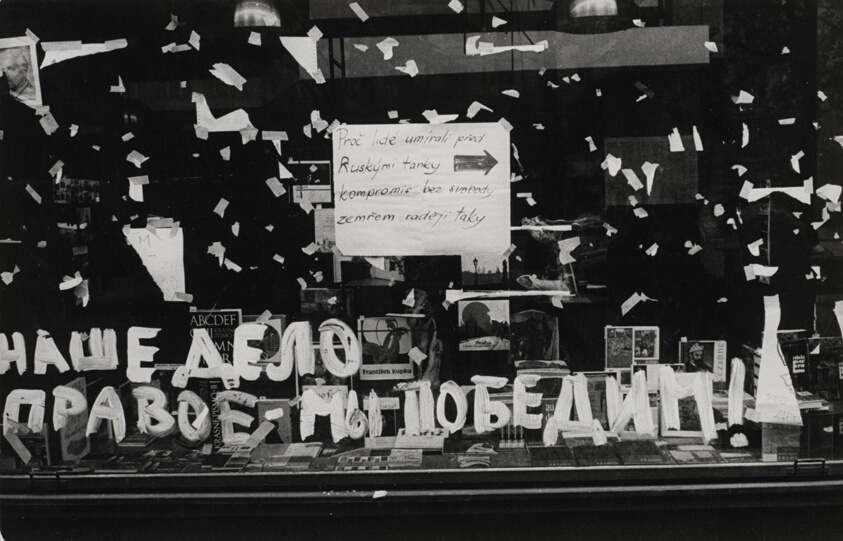 Proč lidé umírali před
Ruskými tanky
kompromis bez svobody
zemřem raději taky
ABCDEF
František Kupka
Praha
CZANNE
НАШЕ ДЕЛО
ПРАВОЕ - МЫ ПОБЕДИМ!